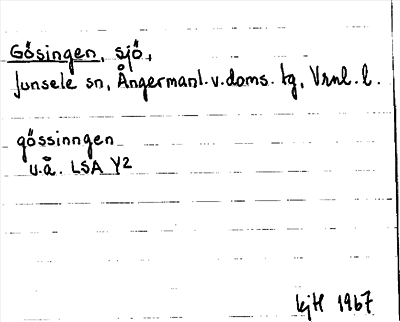 Gösingen, sjö,
Junsele sn, Ångermanl. v. doms. tg, Vrnl. l.
gössinngen
u.å. LSA Y2
kjH 1967